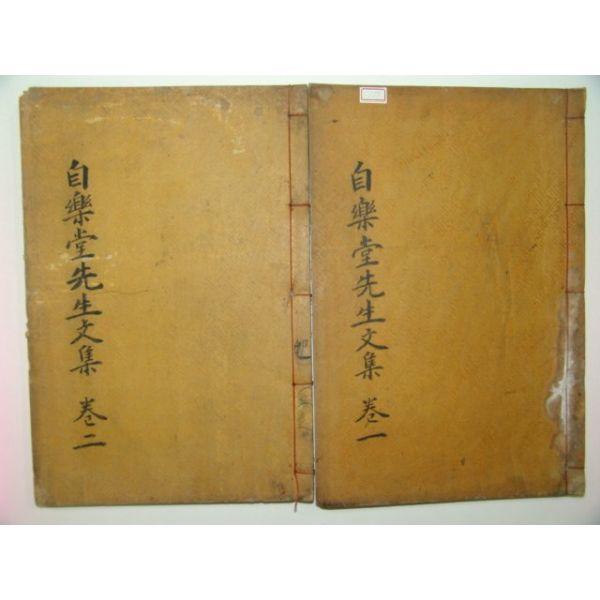 自樂堂先生文集 卷一
自樂堂先生文集 卷二